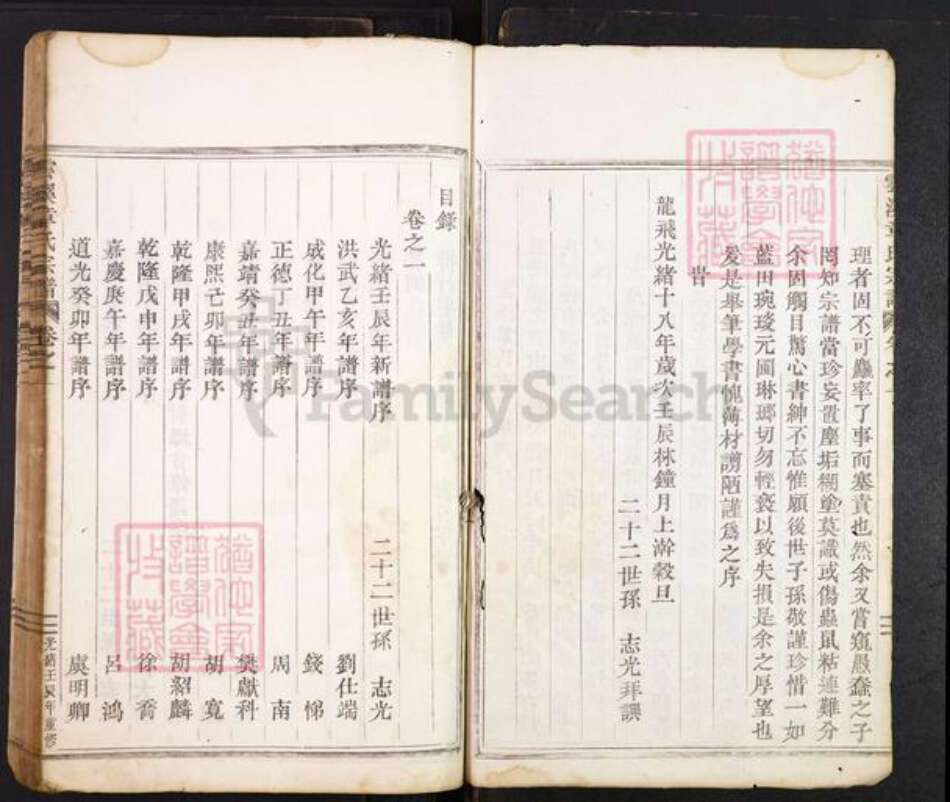 理者固不可麤率了事而塞責也然余又嘗窺愚蠢之子
罔知宗譜當珍妄置塵垢糊塗莫識或傷蟲鼠粘連難分
余固觸目驚心書紳不忘惟願後世子孫敬謹珍惜一如
藍田琬琰元圃琳瑯切勿輕褻以致失損是余之厚望也
爰是舉筆學書愧薄材謭陋謹為之序
旹
龍飛光緒十八年歲次壬辰林鐘月上澣穀旦
二十二世孫 志光拜譔
目錄
卷之一
光緒壬辰年新譜序 二十二世孫 志光
洪武乙亥年譜序 劉仕端
成化甲午年譜序 錢悌
正德丁丑年譜序 周南
嘉靖癸丑年譜序 樊獻科
康熙己卯年譜序 胡寬
乾隆甲戌年譜序 胡紹麟
乾隆戊申年譜序 徐喬
嘉慶庚午年譜序 呂鴻
道光癸卯年譜序 虞明卿
氏宗譜 卷之一
光緒壬辰年重修
FamilySearch